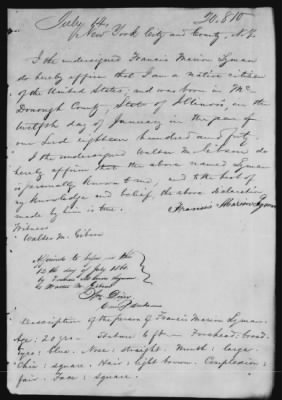 July 14
20.810
New York City and County, N.Y.
I the undersigned Francis Marion Lyman
do hereby affirm that I am a native citizen
of the United States, and was born in Mc
Donough County, State of Illinois, on the
twelfth day of January in the year of
our Lord eighteen hundred and forty.
I the undersigned Walter M. Gibson do
hereby affirm that the above named Lyman
is personally known to me, and to the best of
my knowledge and belief, the above declaration
made by him is true.
Francis Marion Lyman
Witness
Walter M. Gibson
Affirmed to before me this
12th day of July 1860
by Francis Marion Lyman
& Walter M. Gibson
Description of the person of Francis Marion Lyman.
Age: 20 yrs. Stature 6 ft - Forehead: broad.
Eyes: blue. Nose: straight. Mouth: large.
Chin: square. Hair: light brown. Complexion:
fair. Face: square.